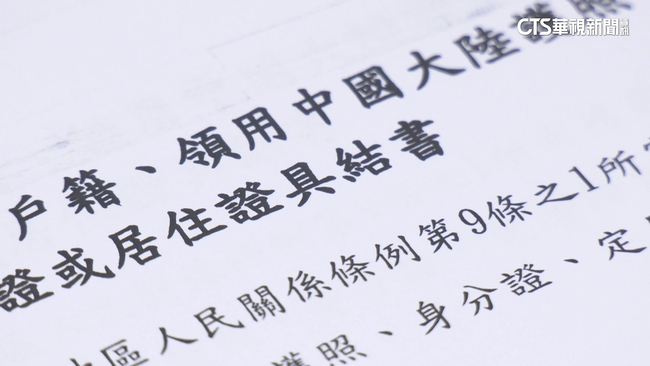 CTS華視新聞
戶籍、領用中國大陸護照
證或居住證具結書
地區人民關係條例第9條之1所定
護照、身分證、定居